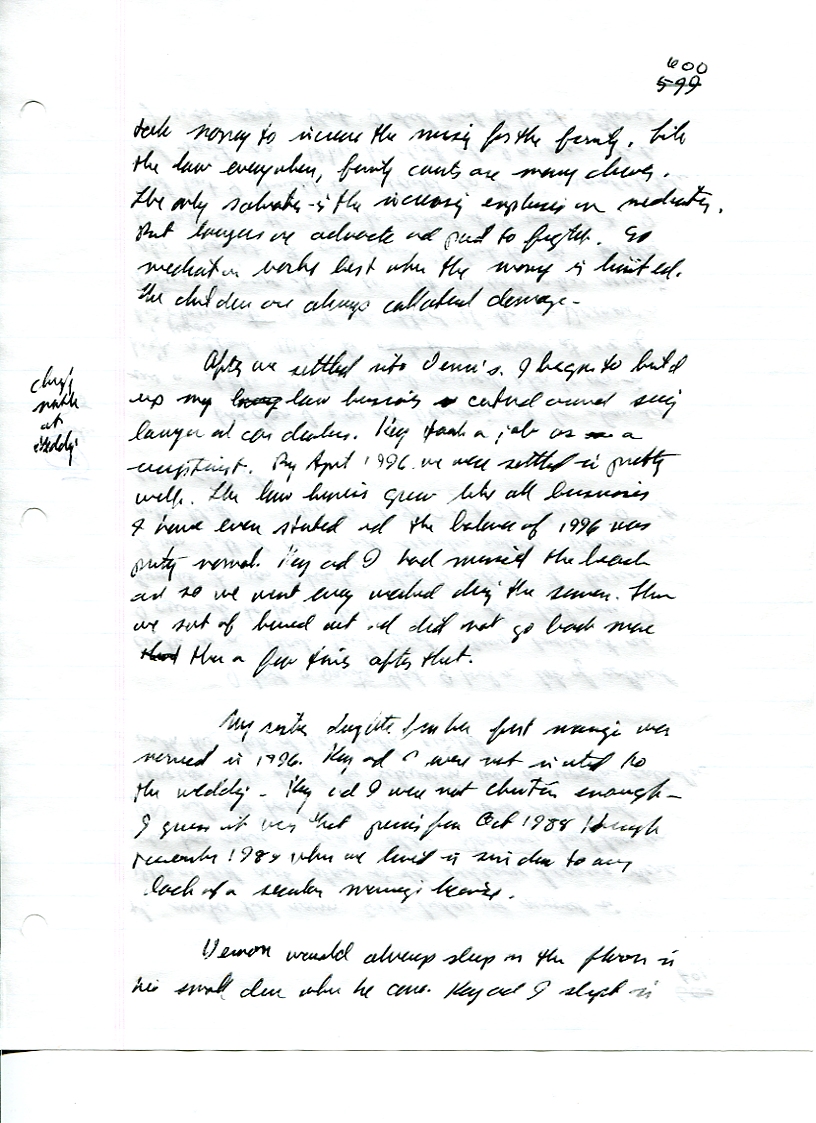 600
599
take money to increase the misery for the family. Like
the law everywhere, family courts are money driven.
The only salvation is the increasing emphasis on mediation.
But lawyers are advocate and paid to fight. So
mediation works best when the money is limited.
The children are always collateral damage -
After we settled into I began to build
up my law business centered around suing
lawyer and car dealers. Kay took a job as a
receptionist. By April 1996 we were settled in pretty
well. The law business grew like all businesses
I have ever started and the balance of 1996 was
pretty normal. Kay and I had missed the beach
and so we went every weekend during the summer. Then
we sort of burned out and did not go back more
than a few times after that.
at
wedding
My sister daughter from her first marriage was
married in 1996. Kay and I were not invited to
the wedding - Kay and I were not Christian enough -
I guess it was that period from Oct 1988 through
December 1989 when we lived in sin due to any
lack of a secular marriage license.
Vernon would always sleep on the floor in
his small den when he came. Kay and I slept in